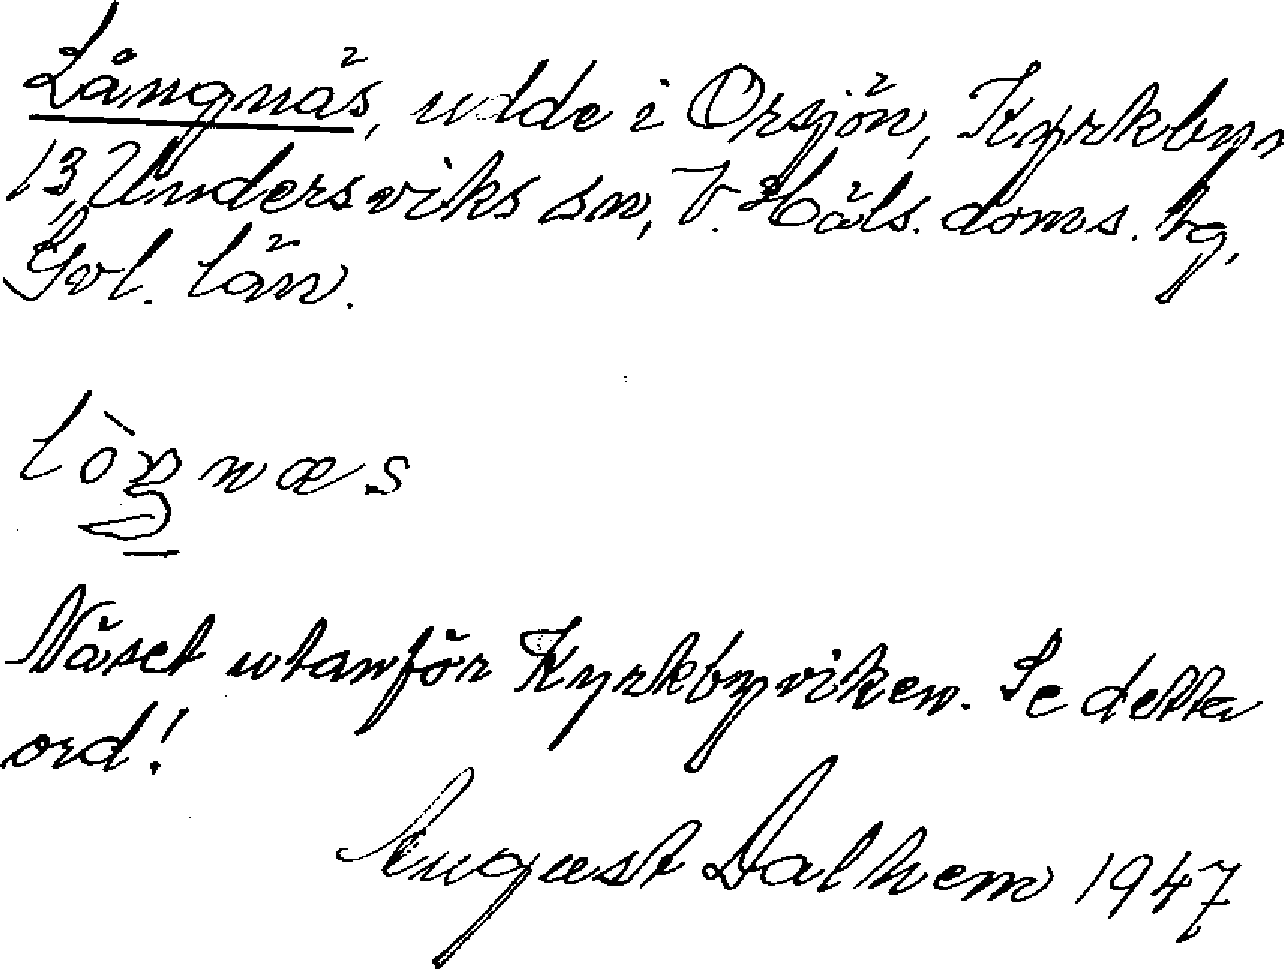 Långnäs, udde i Orsjön, Kyrkbyn
13, Undersviks sn, V. Häls. doms. hg,
Gvl. län.
lòŋnæs
Näset utanför Kyrkbyviken. Se detta
ord!
August Dalhem 1947